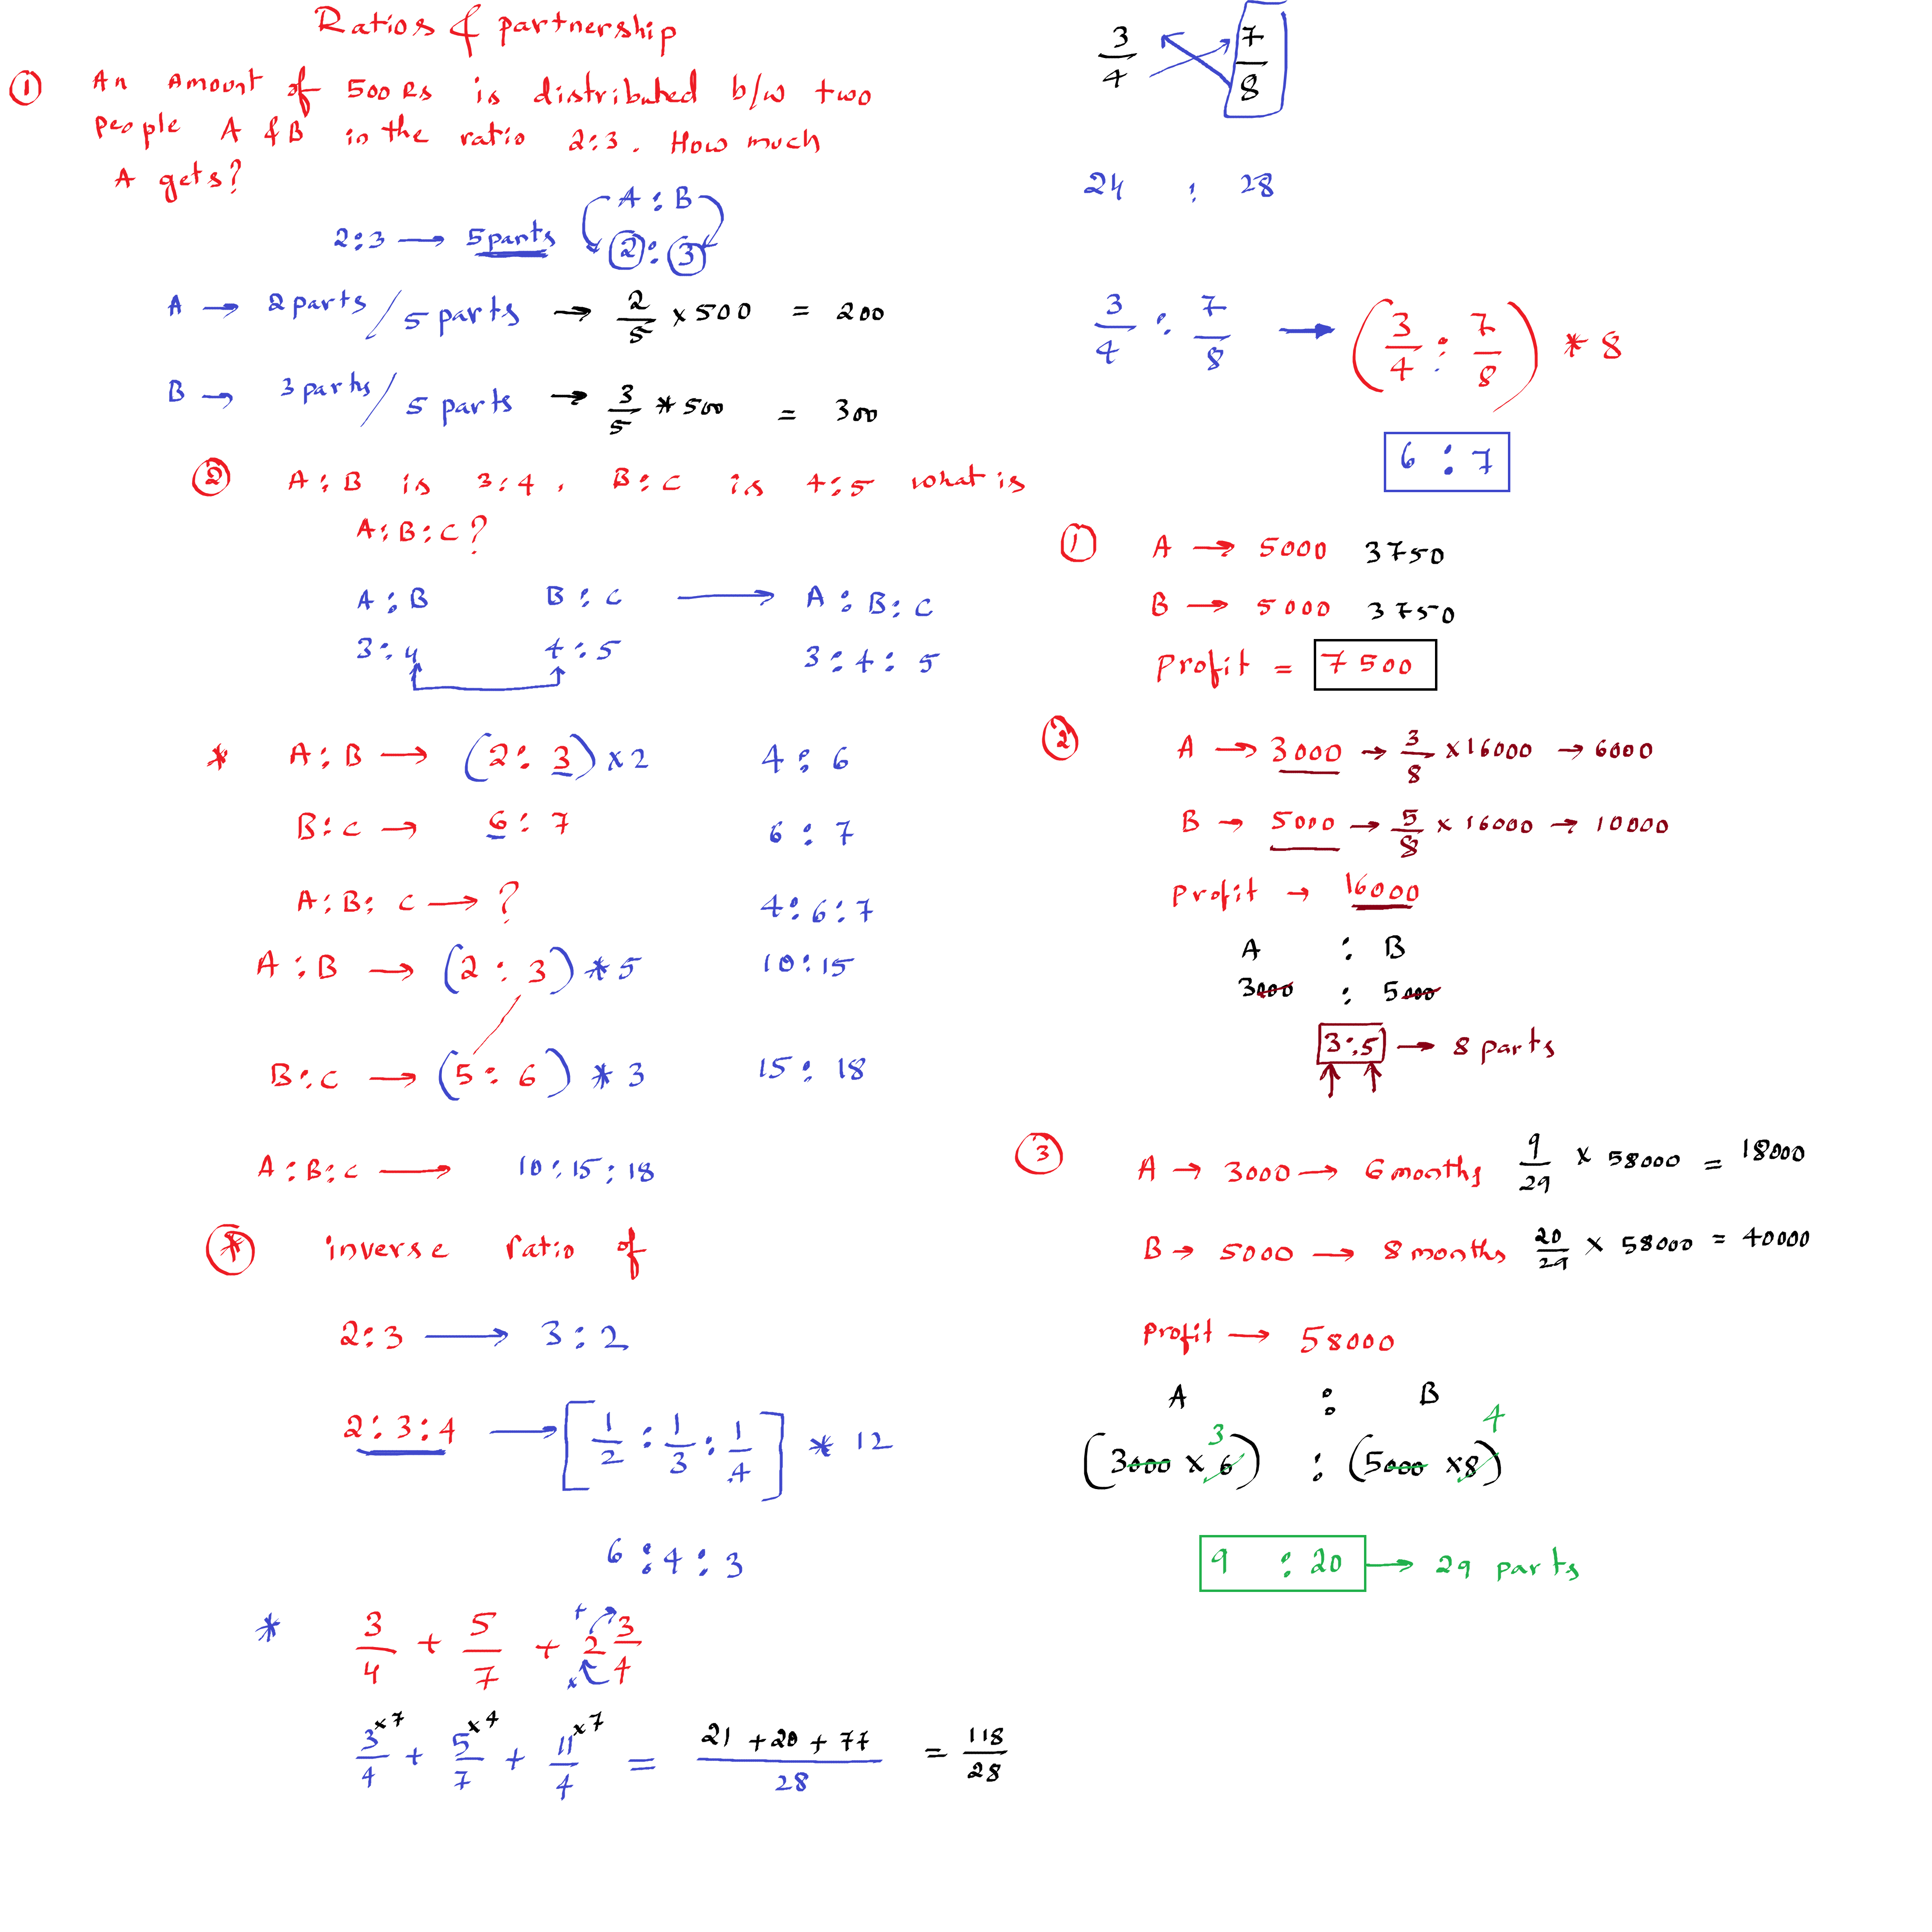 Ratios & partnership
① An Amount of 500 Rs is distributed b/w two
people A & B in the ratio 2:3. How much
A gets?
A : B
2:3 → 5 parts 2 : 3
A → 2 parts / 5 parts → 2/5 × 500 = 200
B → 3 parts / 5 parts → 3/5 * 500 = 300
② A:B is 3:4, B:C is 4:5 what is
A:B:C?
A:B B:C → A:B:C
3:4 4:5 3:4:5
* A:B → (2:3)×2 4:6
B:C → 6:7 6:7
A:B:C → ? 4:6:7
A:B → (2:3)*5 10:15
B:C → (5:6)*3 15:18
A:B:C → 10:15:18
* inverse ratio of
2:3 → 3:2
2:3:4 → [1/2 : 1/3 : 1/4] * 12
6:4:3
* 3/4 + 5/7 + 2 3/4
+
×
3/4 ×7 + 5/7 ×4 + 11/4 ×7 = 21 + 20 + 77 / 28 = 118/28
3/4 7/8
24 : 28
3/4 : 7/8 → (3/4 : 7/8) * 8
6 : 7
① A → 5000 3750
B → 5000 3750
Profit = 7500
② A → 3000 → 3/8 × 16000 → 6000
B → 5000 → 5/8 × 16000 → 10000
Profit → 16000
A : B
3000 : 5000
3:5 → 8 parts
③ A → 3000 → 6 months 9/29 × 58000 = 18000
B → 5000 → 8 months 20/29 × 58000 = 40000
Profit → 58000
A : B
3 4
(3000 × 6) : (5000 × 8)
9 : 20 → 29 parts